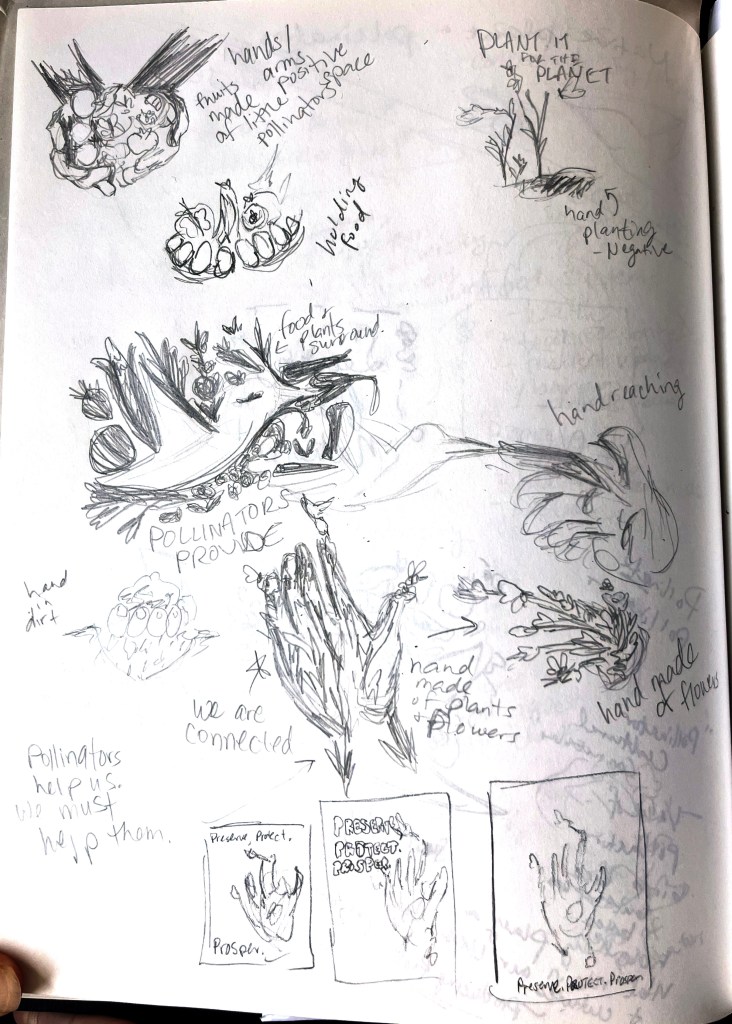 hands/
arms
fruits
made
of little positive
pollinator space
PLANT IT
FOR THE
PLANET
holding
food
hand
planting
- Negative
food &
plants
surround.
hand reaching
POLLINATORS
PROVIDE
hand
in
dirt
we are
connected
hand
made
of plants
+ flowers
hand made
of flowers
Pollinators
help us.
We must
help them.
Preserve. Protect.
Prosper.
PRESERVE
PROTECT.
PROSPER.
Preserve. PROTECT. Prosper.